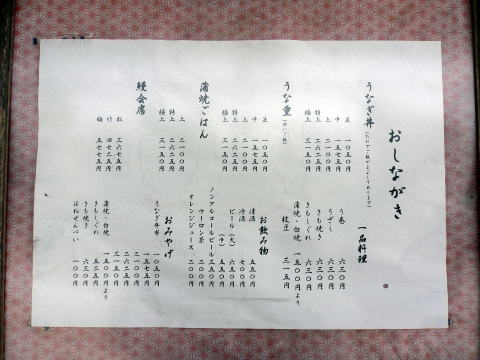 おしながき
うなぎ丼
並 一〇五〇円
中 一五七五円
上 二一〇〇円
特上 二六二五円
極上 三一五〇円
うな重
並 一〇五〇円
中 一五七五円
上 二一〇〇円
特上 二六二五円
極上 三一五〇円
蒲焼ごはん
上 二一〇〇円
特上 二六二五円
極上 三一五〇円
鰻会席
松 三六七五円
竹 四七二五円
梅 五七七五円
一品料理
う巻 六三〇円
うざく 六三〇円
きも焼き 六三〇円
きもしぐれ 六三〇円
蒲焼・白焼 一五〇〇円より
枝豆 三一五円
お飲み物
清酒 五五〇円
冷酒 七〇〇円
ビール（大） 六五〇円
（中） 五五〇円
ノンアルコールビール 五〇〇円
ウーロン茶 二〇〇円
オレンジジュース 二〇〇円
おみやげ
うなぎ弁当 一〇五〇円
一五七五円
二一〇〇円
二六二五円
三一五〇円
蒲焼・白焼 一五〇〇円より
きもしぐれ 五二五円
きも焼き 六三〇円
ほねせんべい 一〇〇円